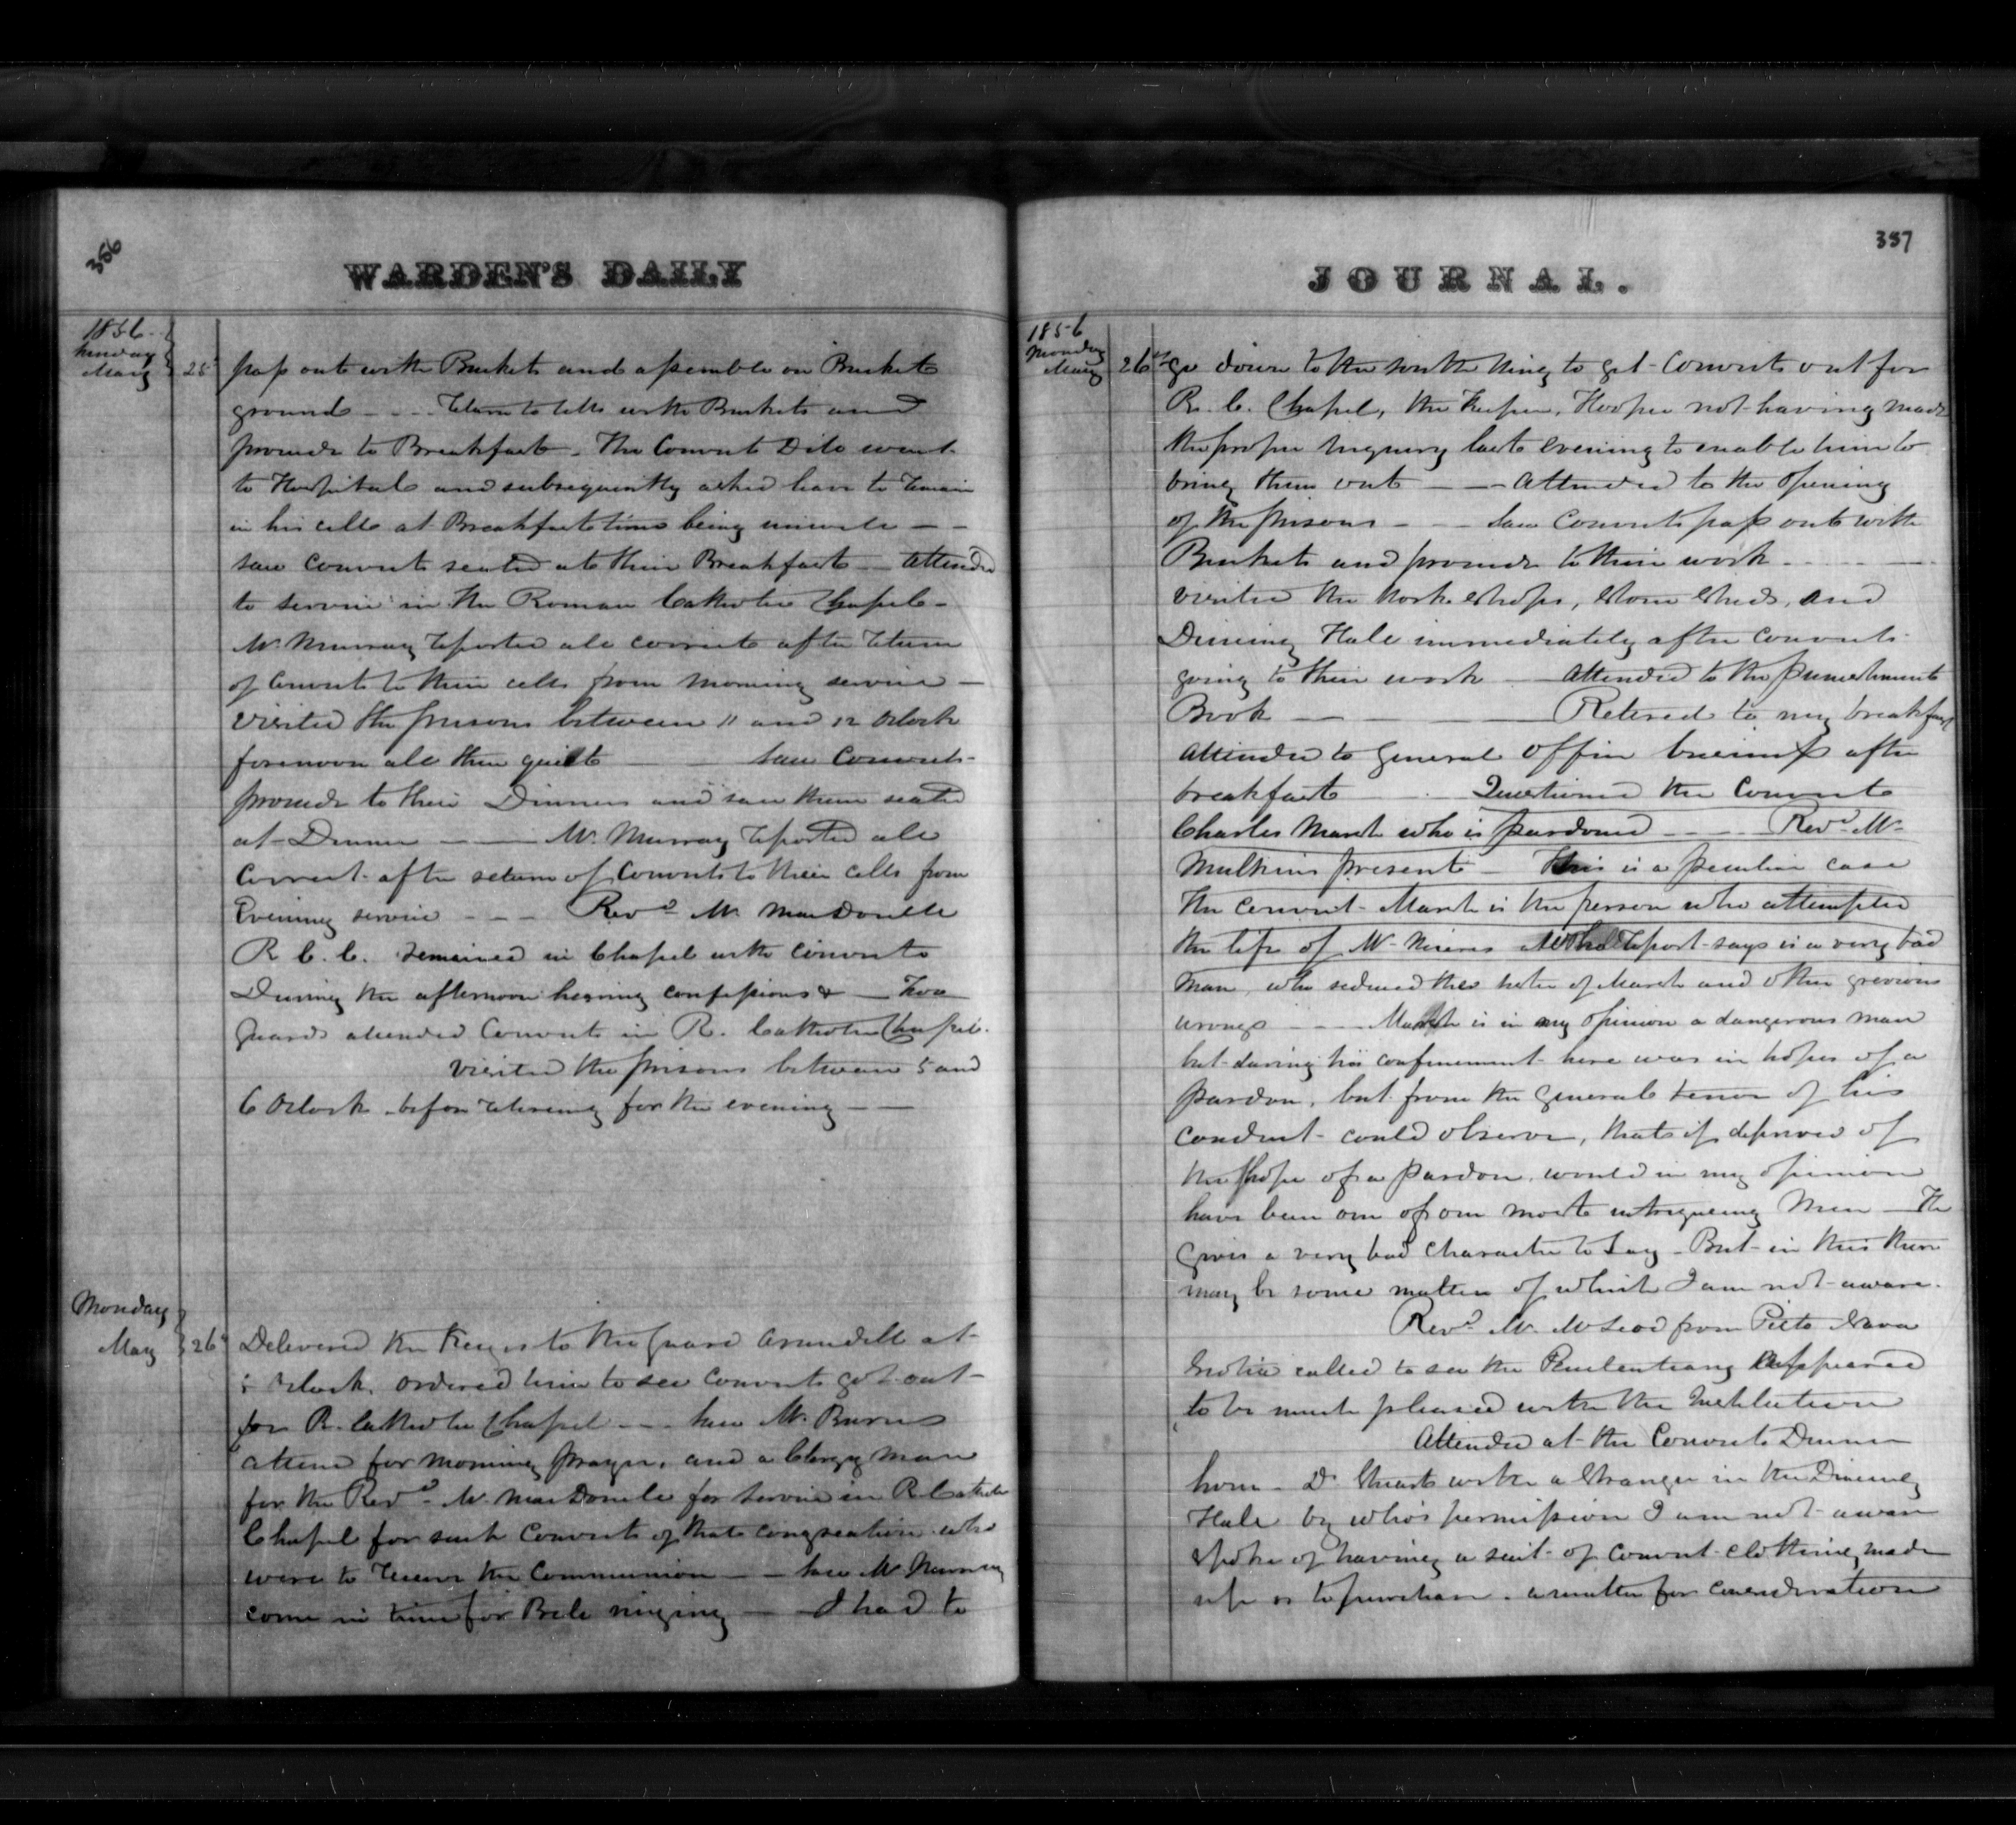 356
WARDEN'S DAILY
1856
Sunday
May 25
pass out with Buckets and assemble on Bucket
ground - - - Return to Cells with Buckets and
proceed to Breakfast - The Convict Dilo went
to Hospital and subsequently asked leave to remain
in his cell at Breakfast time being unwell - -
saw Convicts seated at their Breakfast - attended
to service in the Roman Catholic Chapel -
Mr. Murray reported all correct after return
of Convicts to their cells from morning service -
visited the prisons between 11 and 12 Oclock
forenoon all then quiett saw Convicts
proceed to their Dinners and saw them seated
at Dinner - - Mr. Murray reported all
Correct after return of Convicts to their cells from
Evening service - - - Revd. Mr. MacDonell
R. C. C. remained in Chapel with Convicts
During the afternoon hearing confessions & - Two
Guards attended Convicts in R. Catholic Chapel.
visited the prisons between 5 and
6 Oclock before retireing for the evening - -
Monday
May 26
Delivered the Keys to the Guard Arundell at
5 Oclock, ordered him to see Convicts got out
for R. Catholic Chapel - - saw Mr. Burns
attend for morning prayer, and a Clergy man
for the Revd. Mr. MacDonell for service in R. Catholic
Chapel for such Convicts of that congreation who
were to receive the Communion - - saw Mr. Murray
come in time for Bell ringing - I had to
JOURNAL.
357
1856
Monday
May 26
go down to the south wing to get Convicts out for
R. C. Chapel, the Keeper, Hooper not having made
the proper enquiry last evening to enable him to
bring them out - - Attended to the opening
of the prisons - - saw Convicts pass out with
Buckets and proceed to their work - - -
visited the Work Shops, Stone Sheds, and
Dineing Hall immediately after convicts
going to their work - Attended to the punishment
Book - - Retired to my breakfast
attended to General Office business after
breakfast - Questioned the Convict
Charles March who is pardoned - - - Revd. Mr.
Mulkins present - This is a peculiar case
The Convict March is the person who attempted
the life of Mr. who report says is a very bad
man, who seduced the sister of March and other grevious
wrongs - - March is in my opinion a dangerous man
but during his confinement here was in hopes of a
pardon, but from the general tenor of his
conduct could observe, that if deprived of
the hope of a pardon, would in my opinion
have been one of our most intrigueing Men - He
gives a very bad character to Tay - But in this there
may be some matters of which I am not aware.
Revd. Mr. McLeod from Pictou Nova
Scotia called to see the Penitentiary appeared
to be much pleased with the Institution
Attended at the Convicts Dinner
hour - Dr. Stuart with a Stranger in the Dineing
Hall by who's permission I am not aware
spoke of haveing a suit of Convict clotheing made
up or to purchase. a matter for consideration